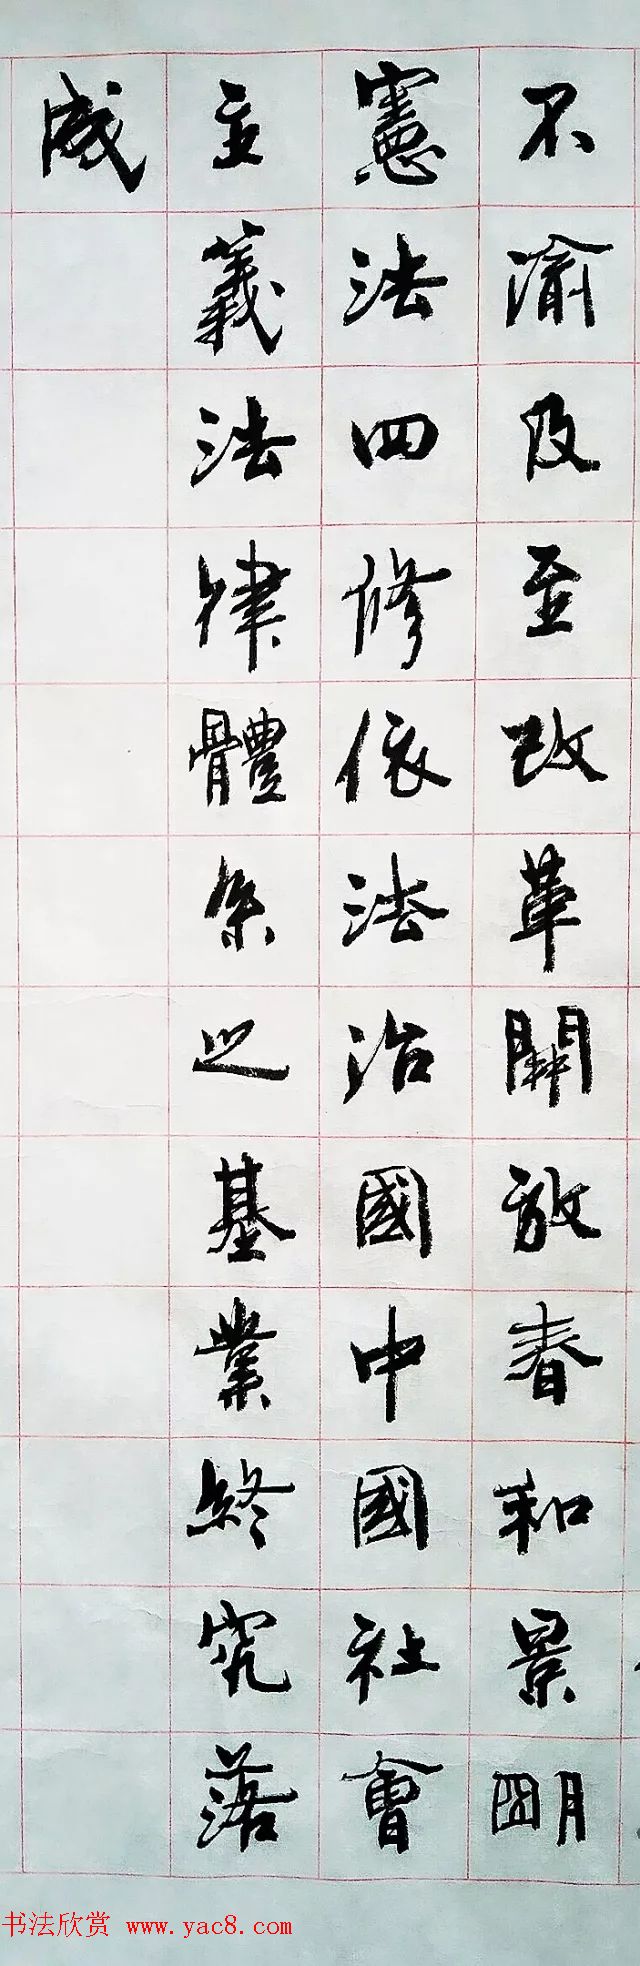 不渝及至改革開放春和景明
憲法四修依法治國中國社會
主義法律體系之基業終究落
成
书法欣赏 www.yac8.com